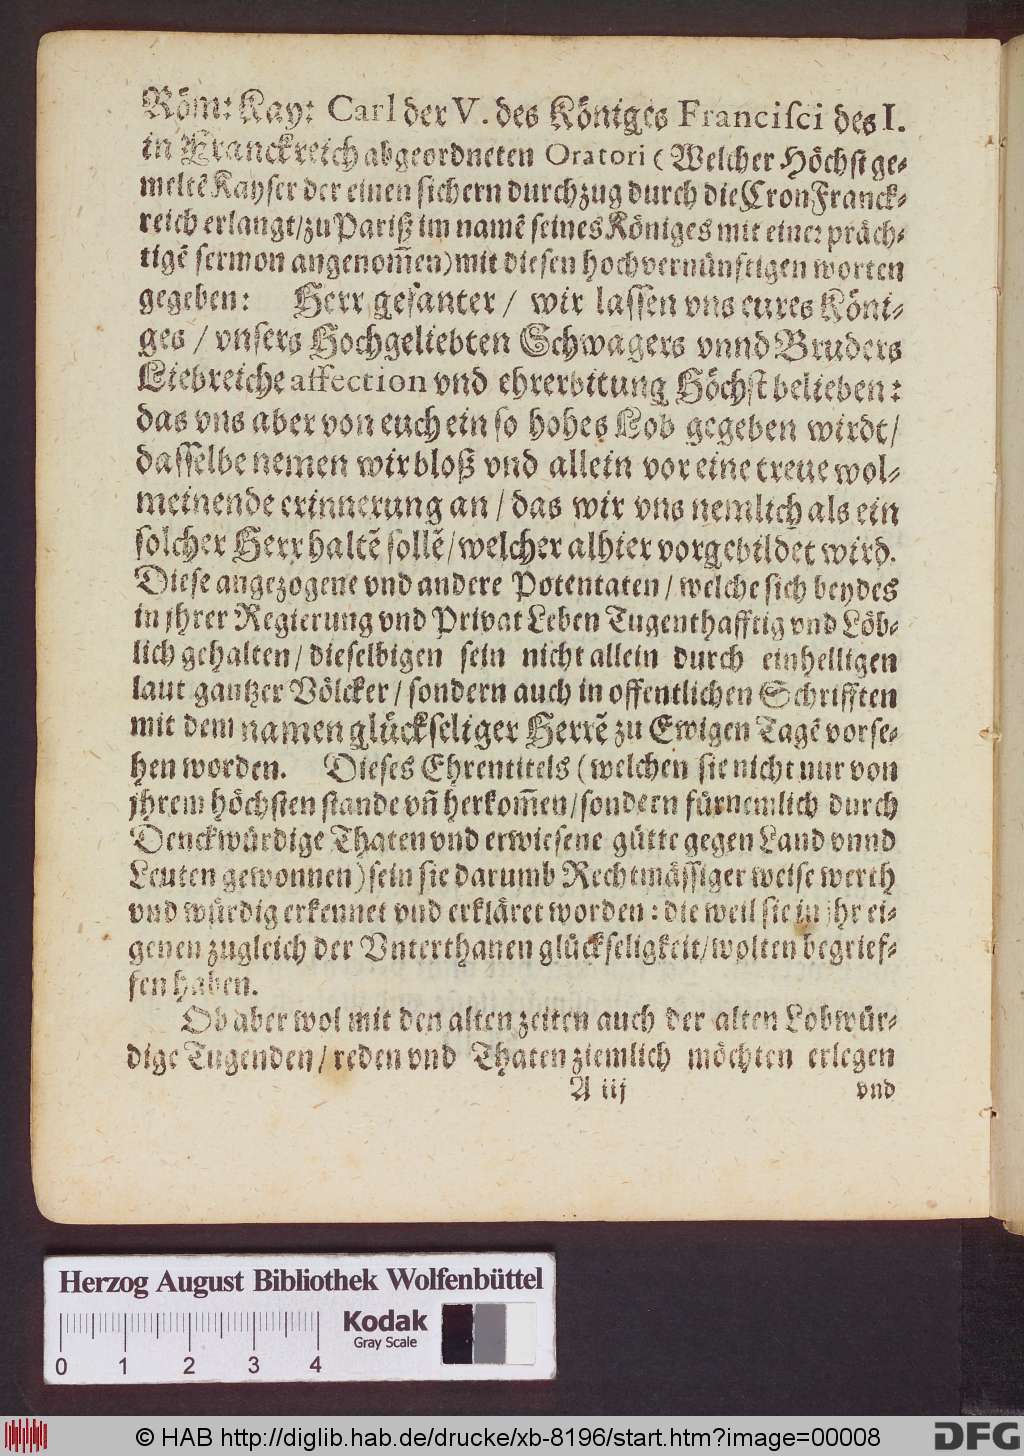 Röm: Kay: Carl der V. des Königes Franciſci des I.
in Franckreich abgeordneten Oratori (Welcher Höchſt ge-
meltē Kayſer der einen ſichern durchzug durch die Cron Franck-
reich erlangt/ zu Pariß im namē ſeines Königes mit einer präch-
tigē ſermon angenom̄en) mit dieſen hochvernünfftigen worten
gegeben: Herr geſanter / wir laſſen vns eures Köni-
ges / vnſers Hochgeliebten Schwagers vnnd Bruders
Liebreiche affection vnd ehrerbitung Höchſt belieben:
das vns aber von euch ein ſo hohes Lob gegeben wirdt/
daſſelbe nemen wir bloß vnd allein vor eine treue wol-
meinende erinnerung an / das wir vns nemlich als ein
ſolcher Herr haltē ſollē/ welcher alhier vorgebildet wird.
Dieſe angezogene vnd andere Potentaten / welche ſich beydes
in jhrer Regierung vnd Privat Leben Tugenthafftig vnd Löb-
lich gehalten / dieſelbigen ſein nicht allein durch einhelligen
laut gantzer Völcker / ſondern auch in offentlichen Schrifften
mit dem namen glückſeliger Herrē zu Ewigen Tagē vorſe-
hen worden. Dieſes Ehrentitels (welchen ſie nicht nur von
jhrem höchſten ſtande vn̄ herkom̄en/ ſondern fürnemlich durch
Denckwürdige Thaten vnd erwieſene gütte gegen Land vnnd
Leuten gewonnen) ſein ſie darumb Rechtmäſſiger weiſe werth
vnd würdig erkennet vnd erkläret worden : die weil ſie in jhr ei-
genen zugleich der Vnterthanen glückſeligkeit/ wolten begrief-
fen haben.
Ob aber wol mit den alten zeiten auch der alten Lobwür-
dige Tugenden / reden vnd Thaten ziemlich möchten erlegen
A iij vnd
Herzog August Bibliothek Wolfenbüttel
Kodak
Gray Scale
0 1 2 3 4
© HAB http://diglib.hab.de/drucke/xb-8196/start.htm?image=00008
DFG